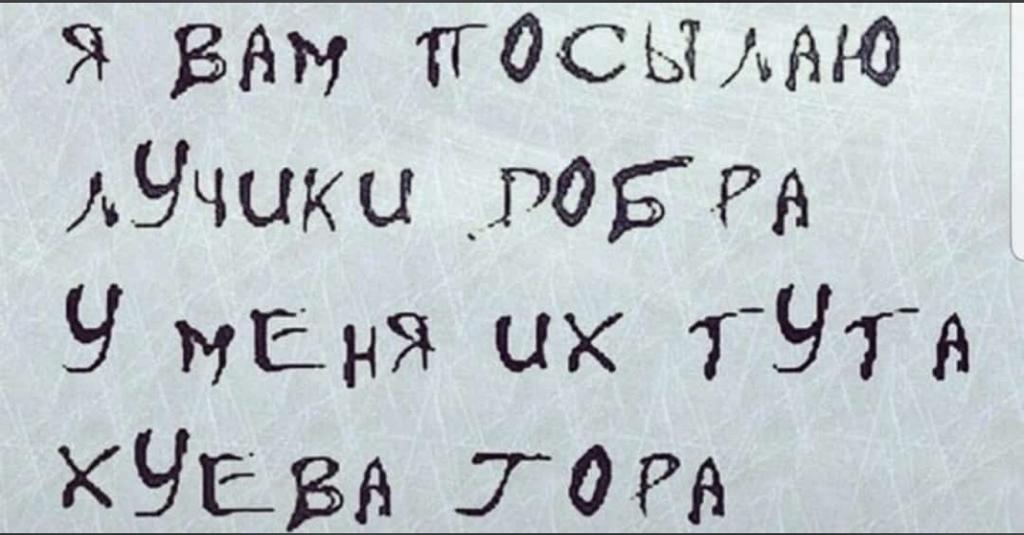 Я ВАМ ПОСЫЛАЮ
ЛУЧИКИ ДОБРА
У МЕНЯ ИХ ТУТА
ХУЕВА ГОРА